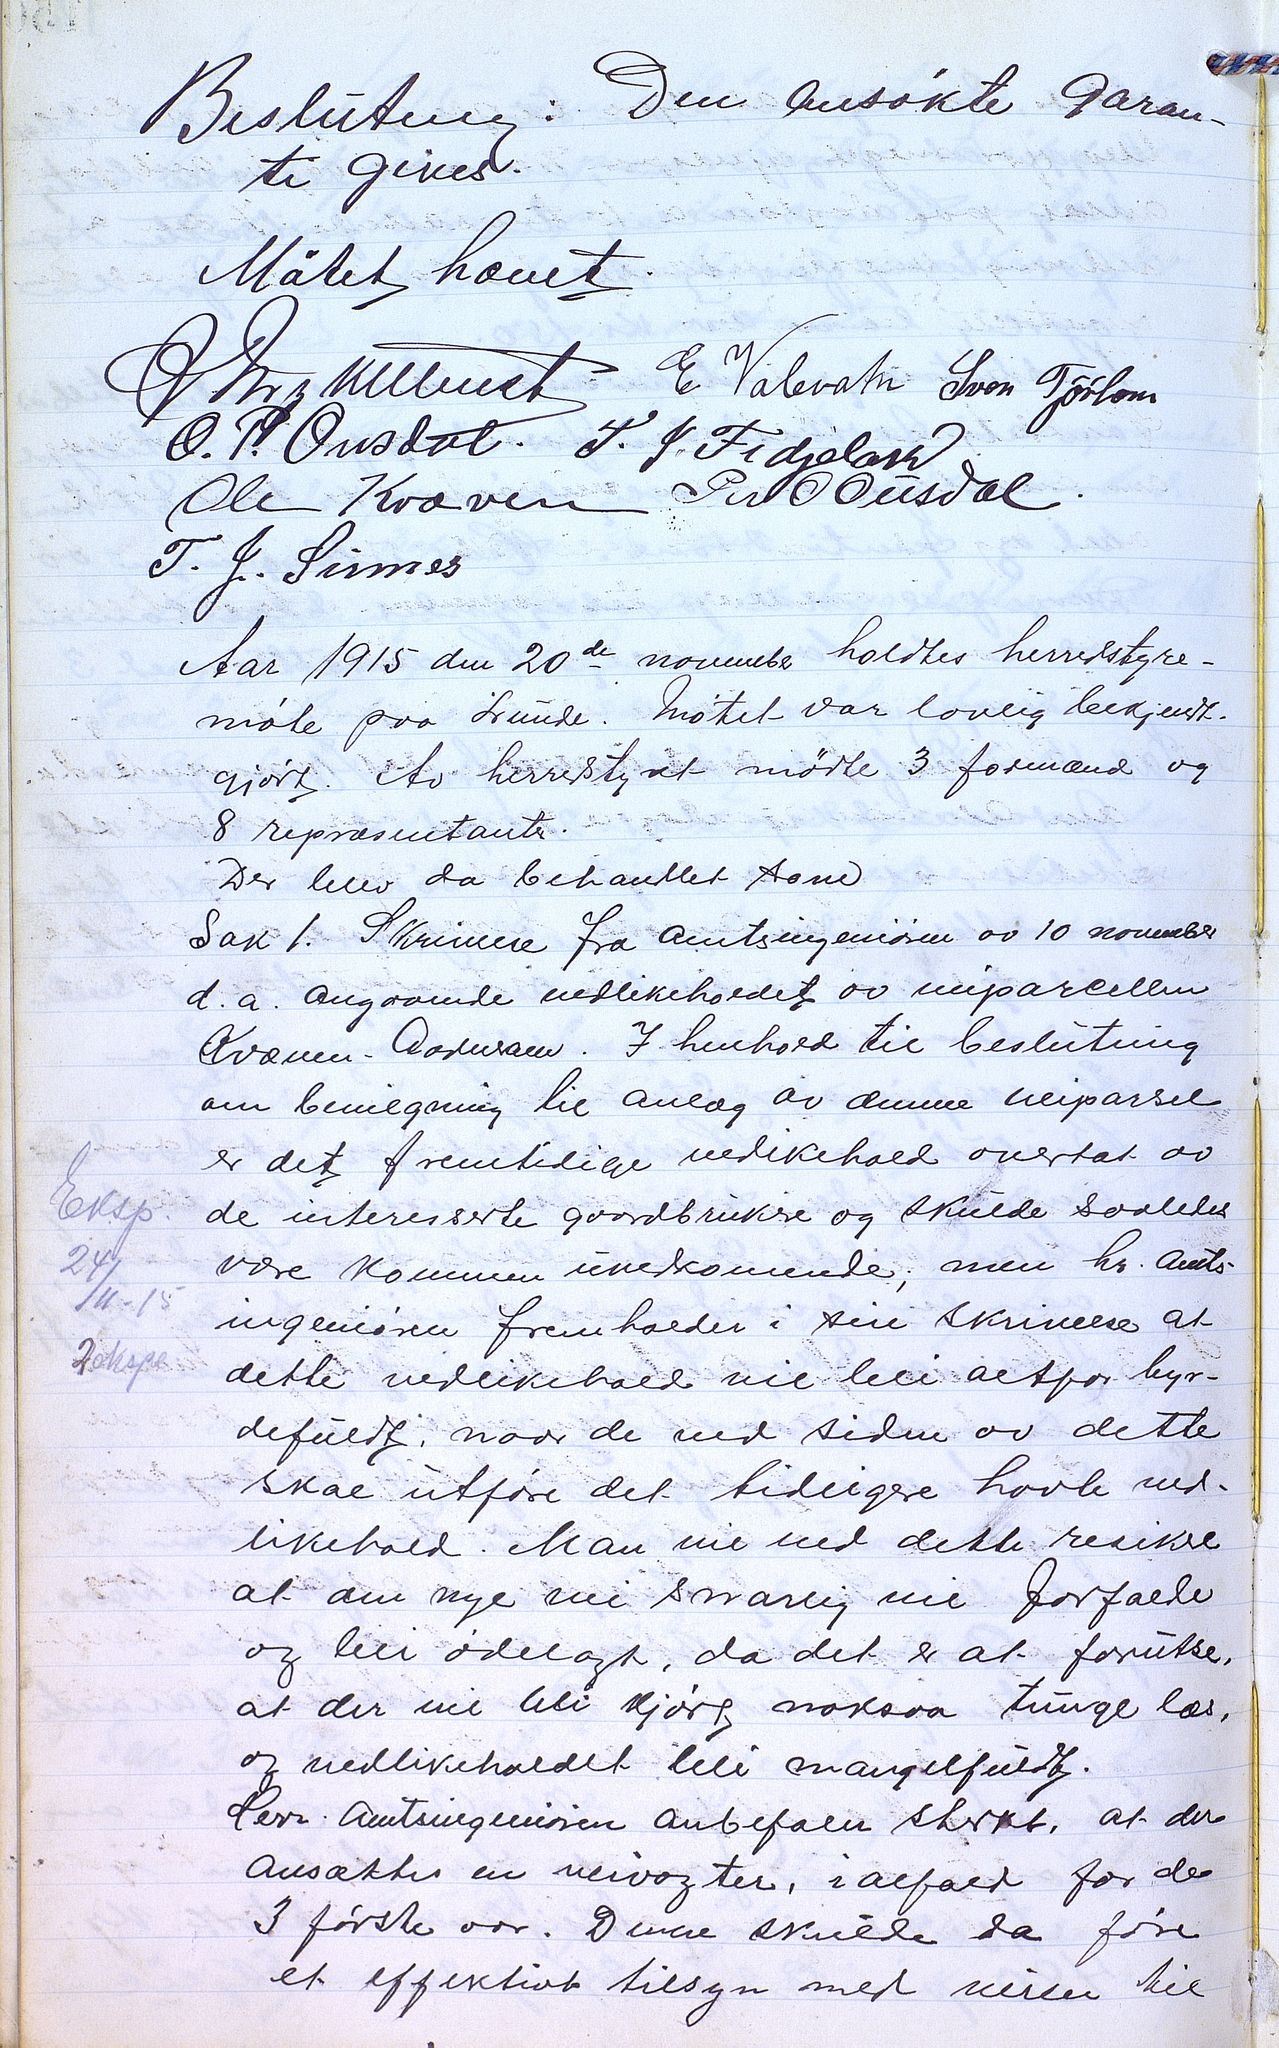 Beslutning: Den ansøkte garan-
ti gives.
Møtet hævet.
E Valevatn Sven Tjørhom
O. P. Ousdal. T. J. Fidjeland
Ole Kvæven Per O Ousdal.
T. J. Sirnes
Aar 1915 den 20de november holdtes herredstyre-
møte paa Lunde. Møtet var lovlig bekjendt-
gjørt. Av herredstyret mødte 3 formænd og
8 repræsentanter.
Der blev da behandlet som
Sak 1. Skrivelse fra amtsingeniøren av 10 november
d. a. angaaende vedlikeholdet av veiparcellen
Kvæven- . I henhold til beslutning
om bevilgning til anlæg av denne veiparsel
er det fremtidige vedlikehold overtat av
de interesserte gaardbrukere og skulde saaledes
være kommunen uvedkomende, men hr. Amts-
ingeniøren fremholder i sin skrivelse at
dette vedlikehold vil bli altfor byr-
defuldt, naar de ved siden av dette
skal utføre det tidligere havte ved-
likehold. Man vil ved dette resikere
at den nye vei snarlig vil forfalde
og bli ødelagt, da det er at forutse,
at der vil bli kjørt noksaa tunge læs,
og vedlikeholdet bli mangelfuldt.
Herr Amtsingeniøren anbefaler sterkt, at der
ansættes en veivogter, i alfald for de
3 første aar. Denne skulde da føre
et effektivt tilsyn med veien til
Eksp.
24/
11-15
2 eksp